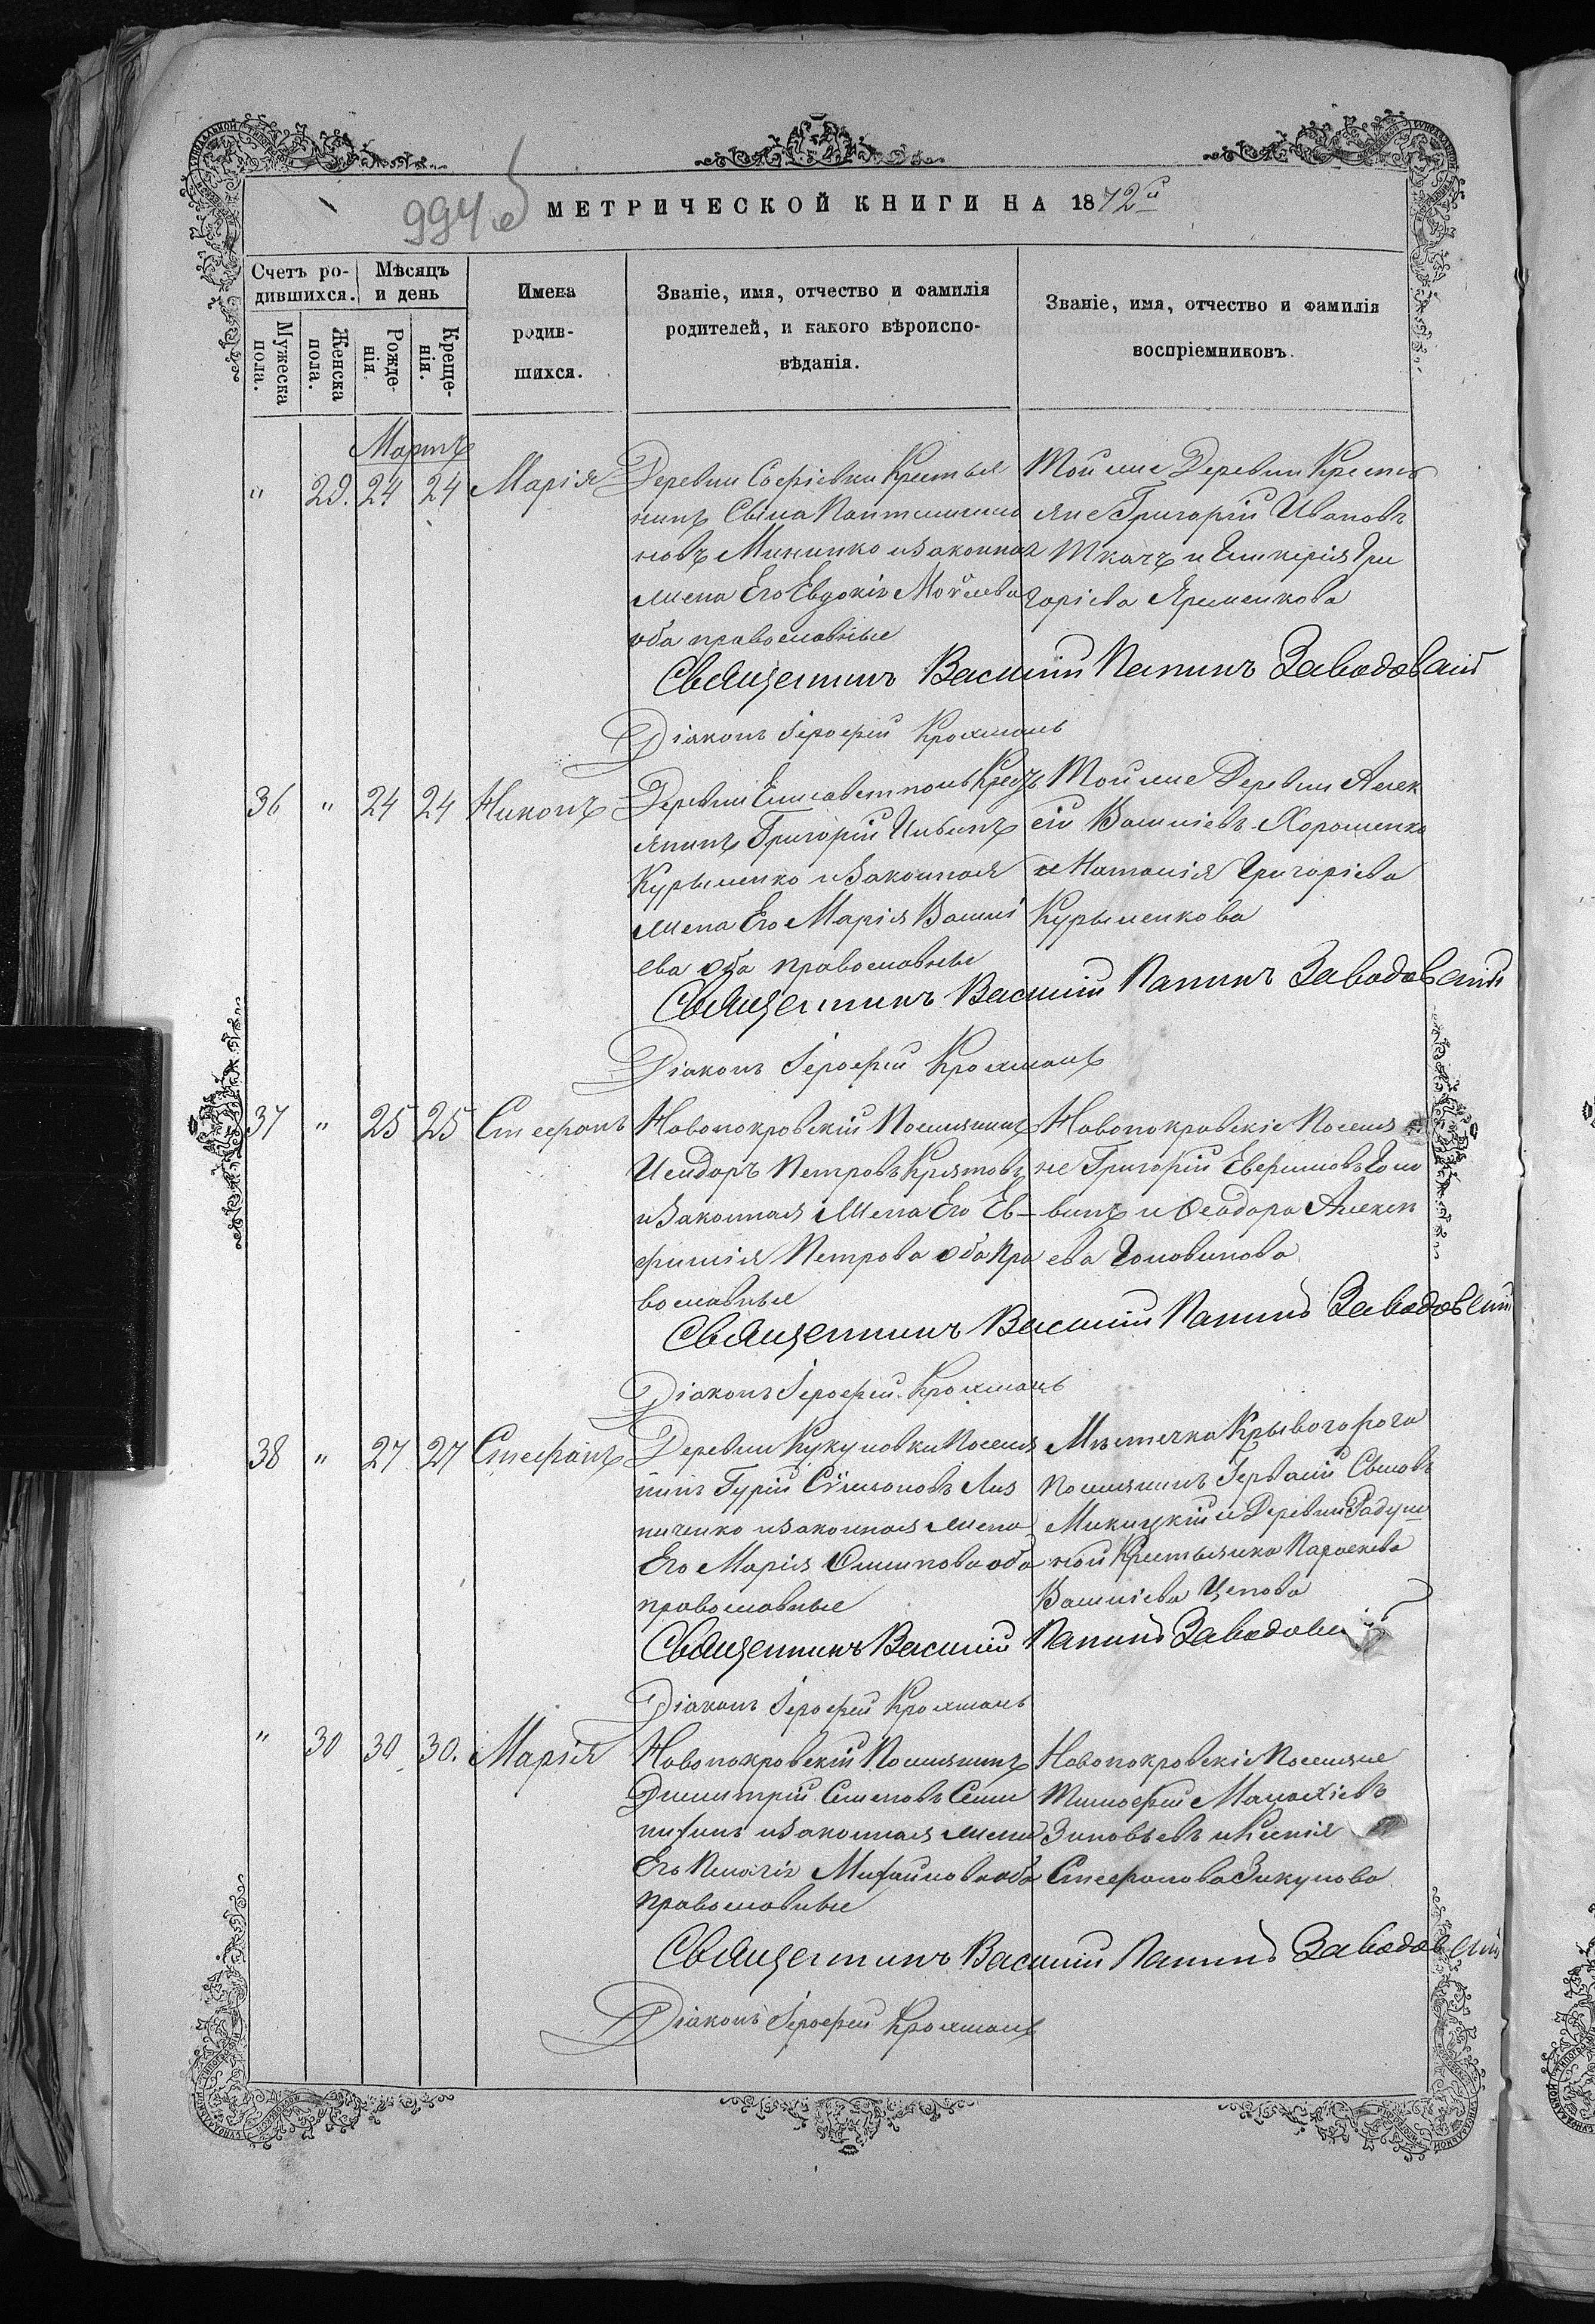 994 об
МЕТРИЧЕСКОЙ КНИГИ НА 1872й
Счетъ ро-
дившихся.
Мѣсяцъ
и день
Имена
родив-
шихся.
Званіе, имя, отчество и фамилія
родителей, и какого вѣроиспо-
вѣданія.
Званіе, имя, отчество и фамилія
воспріемниковъ.
Мужеска
пола.
Женска
пола.
Рожде-
нія
Креще-
нія.
Мартъ
" 29. 24 24 Марія
Деревни Софіевки Крестья
нинъ Сыла Пантилимо
новъ Миненко изаконная
жена Его Евдокія Мойсеева
оба православные
Той же Деревни Крестъ
яне Григорій Ивановъ
Ткачъ и Гликерія Гри
горіева Яременкова
Священникъ Василій Папинъ Заводовскій
Діаконъ Іерофей Крохмаль
36 " 24 24 Никонъ
Деревни Елисаветполь Крест
янинъ Григорій Ильинъ
Курыленко изаконная
жена Его Марія Василі
ева оба православные
Той же Деревни Алек
сій Василіевъ Хорошенко
и Наталія Григоріева
Курыленкова
Священникъ Василій Папинъ Заводовскій
Діаконъ Іерофей Крохмаль
37 " 25 25 Стефанъ
Новопокровскій Поселянинъ
Исидоръ Петровъ Крятовъ
изаконная жена Его Ев-
фимія Петрова оба пра
вославные
Новопокровскіе Поселя
не Григорій Евфимовъ Голо
винъ и Феодора Алексѣ
ева Головинова
Священникъ Василій Папинъ Заводовскій
Діаконъ Іерофей Крохмаль
38 " 27 27 Стефанъ
Деревни Кукуловки Поселя
нинъ Гурій Сѵмеоновъ Ляз
ниченко изаконная жена
Его Марія Осипова оба
православные
Мѣстечка Крывогорога
Поселянинъ Гервасій
Микицкій и Деревни Радуш
ной Крестьянка Параскева
Василіева Цепова
Священникъ Василій Папинъ Заводовскій
Діаконъ Іерофей Крохмаль
" 30 30 30. Марія
Новопокровскій Поселянинъ
Димитрій Семеновъ Сени
нихинъ изаконная жена
Его Пелагія Михайлова оба
православные
Новопокровскіе Поселяне
Тимофей Малахіевъ
Зиновьевъ и Ксенія
Стефанова Зикунова
Священникъ Василій Папинъ Заводовскій
Діаконъ Іерофей Крохмаль